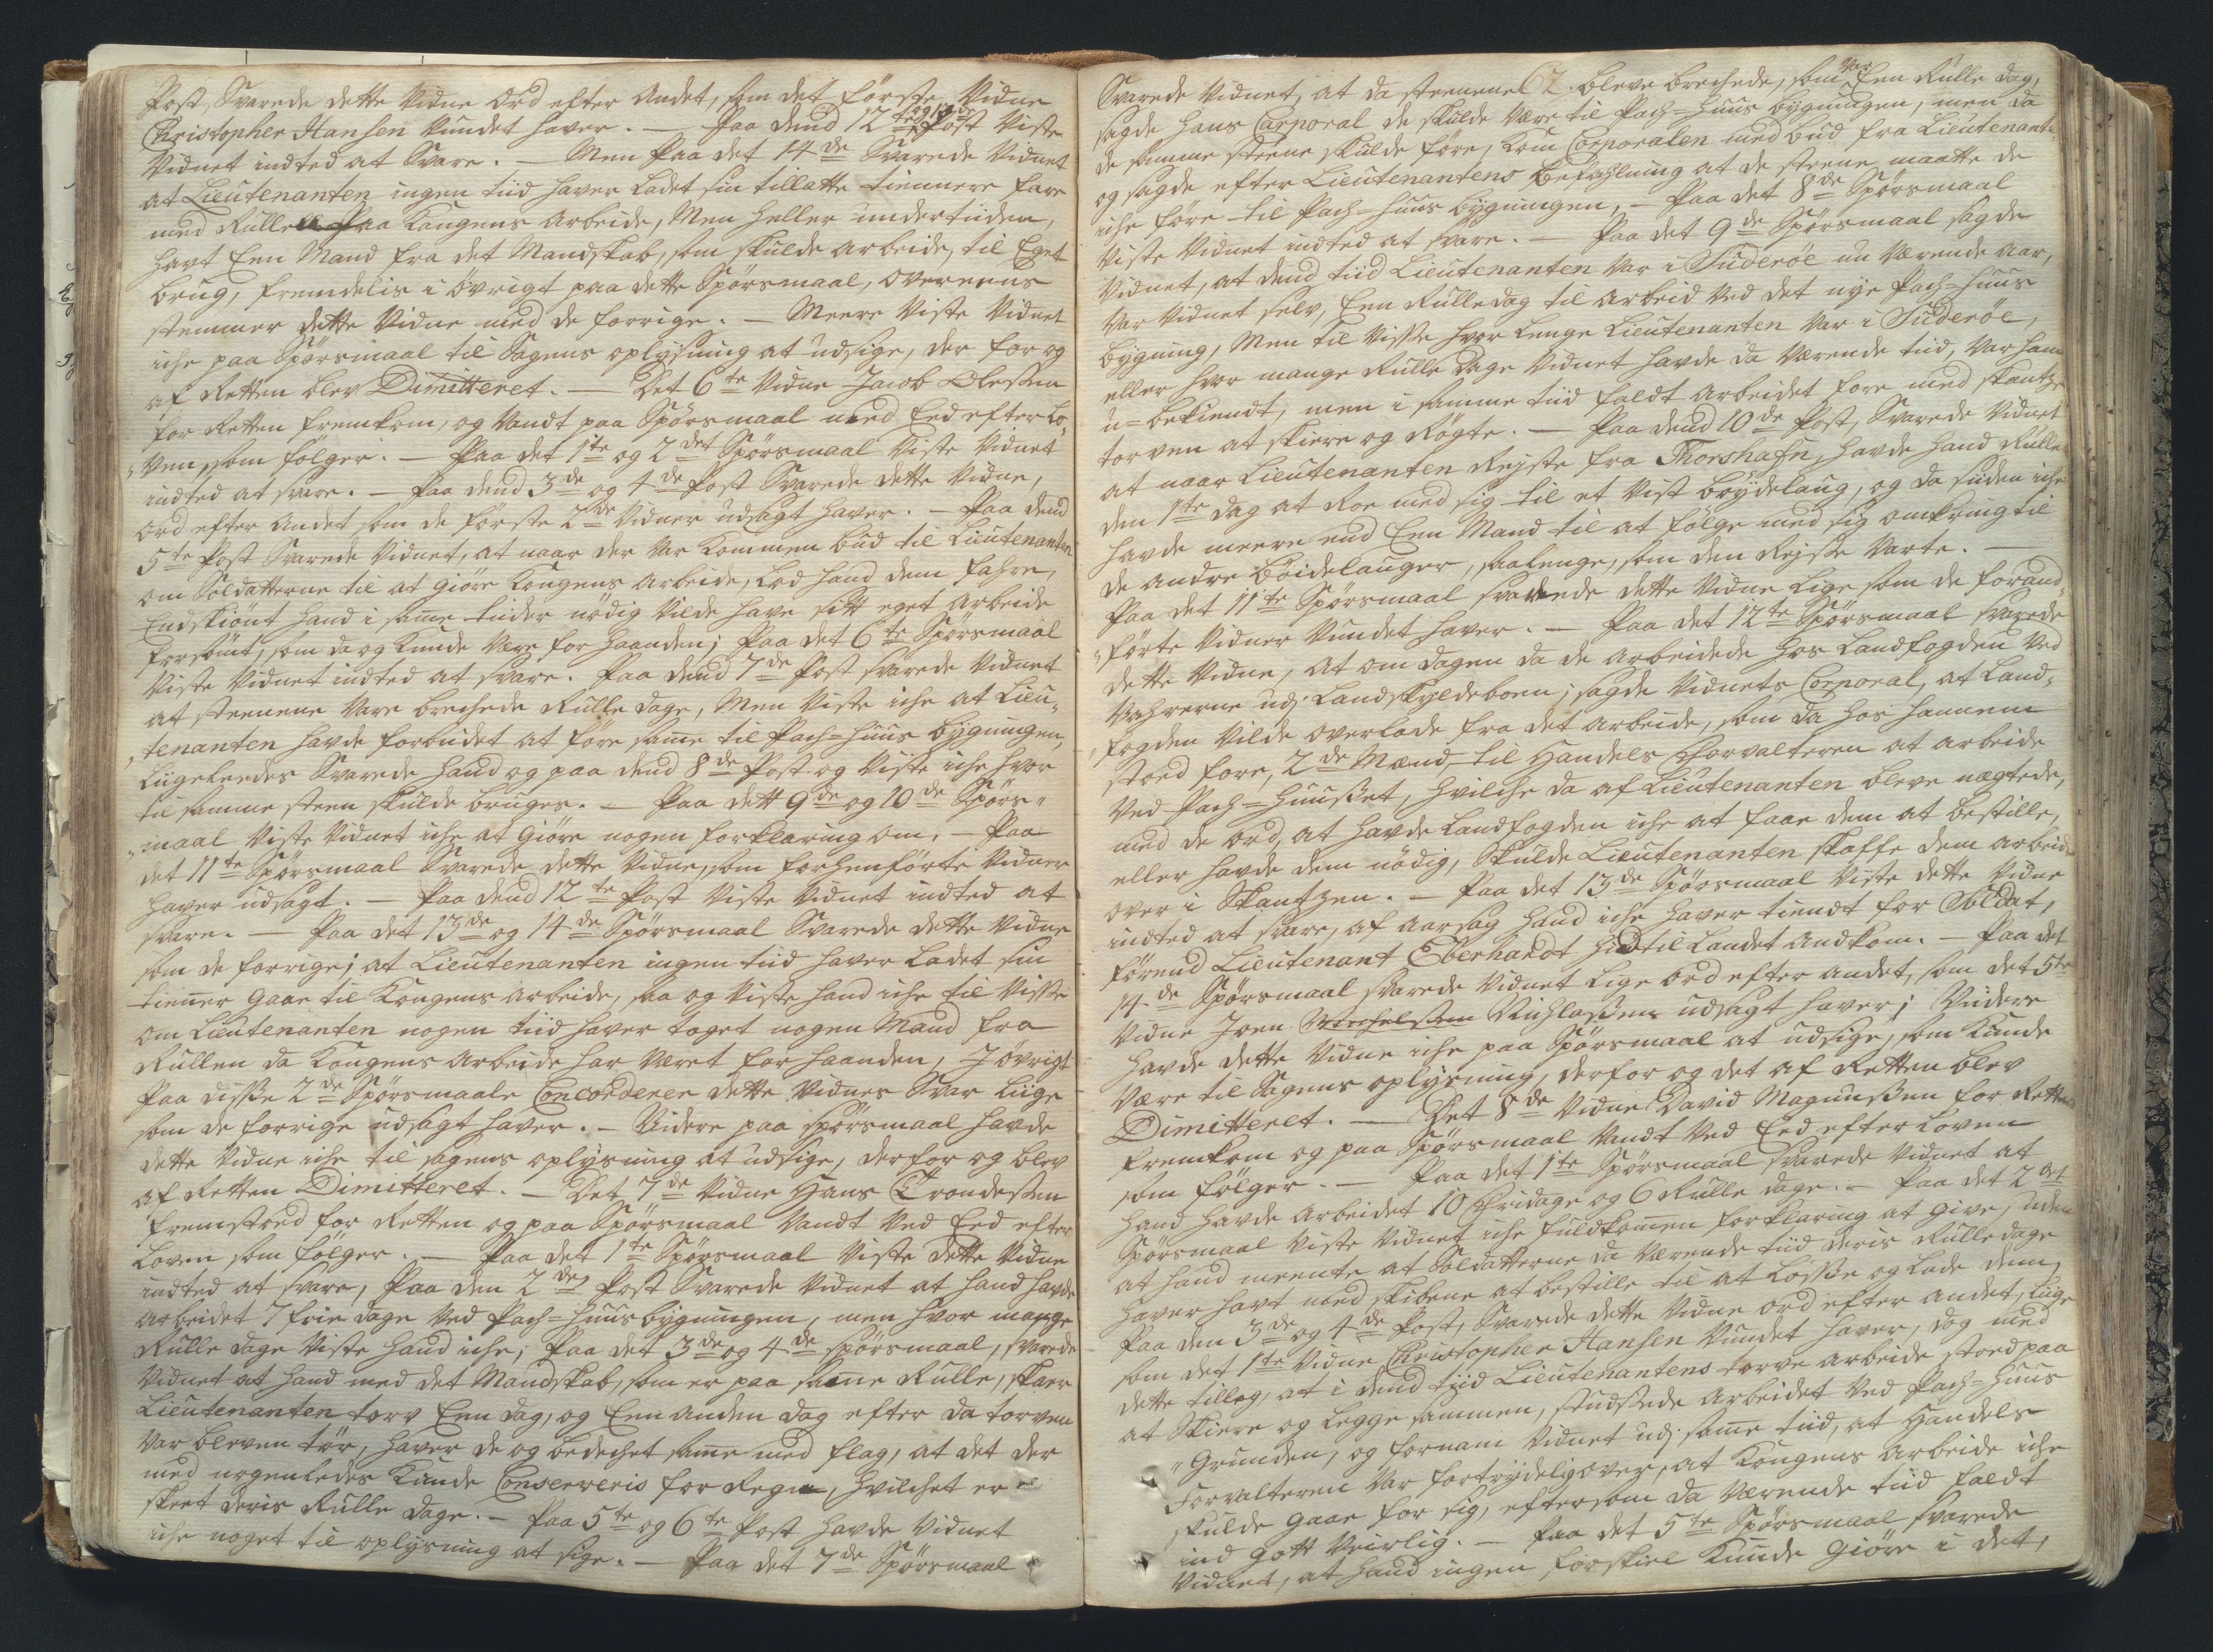 Post, Svarede dette Vidne Ord efter Andet, som det förste Vidne
Christopher Hansen Vundet haver. — Paa dend 12te og 13de Post Viste
Vidnet indted at Svare. — Men Paa det 14de Svarede Vidnet
at Lieutenanten ingen tiid haver Ladet sin tillatte tiennere fare
med Rullen Paa Kongens Arbeide, Men heller undertiiden,
havt Een Mand fra det Mandskab, som skulde Arbeide, til Eget
brug, fremdelis i övrigt paa dette Spörsmaal, overeens
stemmer dette Vidne med de forrige. — Meere Viste Vidnet
iche paa Spörsmaal til Sagens oplysning at udsige, der for og
af Retten blev Dimitteret. — Det 6te Vidne Jacob Olessen
for Retten fremkom, og Vandt paa Spörsmaal med Eed efter Lo-
ven, som fölger. — Paa det 1te og 2det Spörsmaal Viste Vidnet
indted at svare. — Paa dend 3de og 4de Post Svarede dette Vidne,
ord efter Andet som de förste 2de Vidner udsagt haver. — Paa dend
5te Post Svarede Vidnet, at naar der var kommen bud til Lieutenanten
om Soldatterne til at giöre Kongens Arbeide, Lod hand dem fahre,
Endskiönt hand i same tiider nödig Vilde have sitt eget Arbeide
forsömt, som da og kunde Være for haanden; Paa det 6te Spörsmaal
Viste Vidnet indted at svare. Paa dend 7de Post svarede Vidnet
at steenene Vare brechede Rulle dage, Men Viste iche at Lieu-
tenanten havde forbudet at före same til Pach-huus bygningen,
Liigeleedes Svarede hand og paa dend 8de Post og Viste iche hvor
til samme steen skulde bruges. — Paa dett 9de og 10de Spörs-
maal Viste Vidnet iche at giöre nogen forklaring om. — Paa
det 11te Spörsmaal Svarede dette Vidne, som forhenförte Vidner
haver udsagt. — Paa dend 12te Post Viste Vidnet indted at
svare. — Paa det 13de og 14de Spörsmaal Svarede dette Vidne
som de forrige; at Lieutenanten ingen tiid haver Ladet sin
tienner gaae til Kongens Arbeide, saa og Viste hand iche til Visse
om Lieutenanten nogen tiid haver taget nogen Mand fra
Rullen da Kongens Arbeide har Været for haanden, J övrigt
Paa disse 2de Spörsmaale Concorderer dette Vidnes Svar Liige
som de forrige udsagt haver. — Videre paa spörsmaal havde
dette Vidne iche til sagens oplysning at udsige, derfor og blev
af Retten Dimitteret. — Det 7de Vidne Hans Trondessen
fremstoed for Retten og paa Spörsmaal Vandt Ved Eed efter
Loven som fölger. — Paa det 1te Spörsmaal Viste dette Vidne
indted at svare, Paa den 2den Post Svarede Vidnet at hand havde
Arbeidet 7 frie dage Ved Pach-huus bygningen, men hvor mange
Rulle dage Viste hand iche; Paa det 3de og 4de spörsmaal, svarede
Vidnet at hand med det Mandskab, som er paa same Rulle, skaer
Lieutenanten torv Een dag, og Een anden dag efter da torven
Var bleven tör, haver de og bedechet same med flag, at det der
med nogenledes kunde Conserveris for Regn, hvilchet er
skeet deris Rulle dage. — Paa 5te og 6te Post havde Vidnet
iche noget til oplysning at sige. — Paa det 7de Spörsmaal
67.
Svarede Vidnet, at da steenene bleve brechede, som Var Een Rulle dag,
sagde hans Corporal de skulde Være til Pach-huus bygningen, men da
de samme steene skulde före, kom Corporalen med bud fra Lieutenanten
og sagde efter Lieutenantens befahlning at de steene maatte de
iche före til Pach-huus bygningen. — Paa det 8de Spörsmaal
Viste Vidnet indted at svare. — Paa det 9de Spörsmaal sagde
Vidnet, at dend tiid Lieutenanten Var i Suderöe nu Værende Aar,
Var Vidnet selv, Een Rulledag til Arbeid Ved det nye Pach-huus
bygning, Men til Visse hvor Lenge Lieutenanten Var i Suderöe,
eller hvor mange Rulle dage Vidnet havde da Værende tiid, Var ham
u-bekiendt, men i samme tiid faldt Arbeidet fore med skantze
torven at skiere og Rögte. — Paa dend 10de Post, Svarede Vidnet
at naar Lieutenanten Rejste fra Thorshafn, havde hand Rulle
den 1te dag at Roe med sig til et Vist böydelaug, og da siiden iche
havde meere end Een Mand til at fölge med sig omkring til
de andre böidelauger, saalenge, som den Rejsse Varte. —
Paa det 11te Spörsmaal svarede dette Vidne Lige som de forand-
förte Vidner Vundet haver. — Paa det 12te Spörsmaal svarede
dette Vidne, at om dagen da de Arbeidede hos Landfogden Ved
Vahrerne udj Landskyldeboen; sagde Vidnets Corporal, at Land-
fogden Vilde overlade fra det Arbeide, som da hos hannem
stoed fore, 2de Mænd, til Handels Forvalteren at Arbeide
Ved Pach-huusset, hvilche da af Lieutenanten bleve nægtede,
med de ord, at havde Landfogden iche at faae dem at bestille,
eller havde dem nödig, skulde Lieutenanten skaffe dem Arbeide
over i Skantzen. — Paa det 13de Spörsmaal Viste dette Vidne
indted at svare, af Aarsag hand iche haver tiendt for Soldat,
förend Lieutenant Eberhardt hidtil Landet Andkom. — Paa det
14de Spörsmaal svarede Vidnet Lige ord efter Andet, som det 5te
Vidne Joen Nichlassen udsagt haver; Viidere
havde dette Vidne iche paa Spörsmaal at udsige, som kunde
Være til Sagens oplysning, derfor og det af Retten blev
Dimitteret. — Det 8de Vidne David Magnussen for Retten
fremkom og paa Spörsmaal Vandt Ved Eed efter Loven
som fölger. — Paa det 1te Spörsmaal svarede Vidnet at
hand havde Arbeidet 10 Friedage og 6 Rulle dage. — Paa det 2det
Spörsmaal Viste Vidnet iche fuldkomen forklaring at give, uden
at hand meente at Soldatterne da Værende tiid deris Rulledage
haver havt med skibene at bestille til at Lösse og Lade dem,
Paa den 3de og 4de Post, Svarede dette Vidne ord efter andet, Liige
som det 1te Vidne Christopher Hansen Vundet haver, dog med
dette tilleg, at i dend tiid Lieutenantens torve Arbeide stoed paa
at Skiere og Legge sammen, studsede Arbeidet Ved Pach-huus
Grunden, og fornam Vidnet udj same tiid, at Handels
Forvalteren Var fortrydelig over, at Kongens Arbeide iche
skulde gaae for sig, eftersom da Værende tiid faldt
ind gott Veirlig. — Paa det 5te Spörsmaal svarede
Vidnet, at hand ingen forskiel kunde giöre i det,